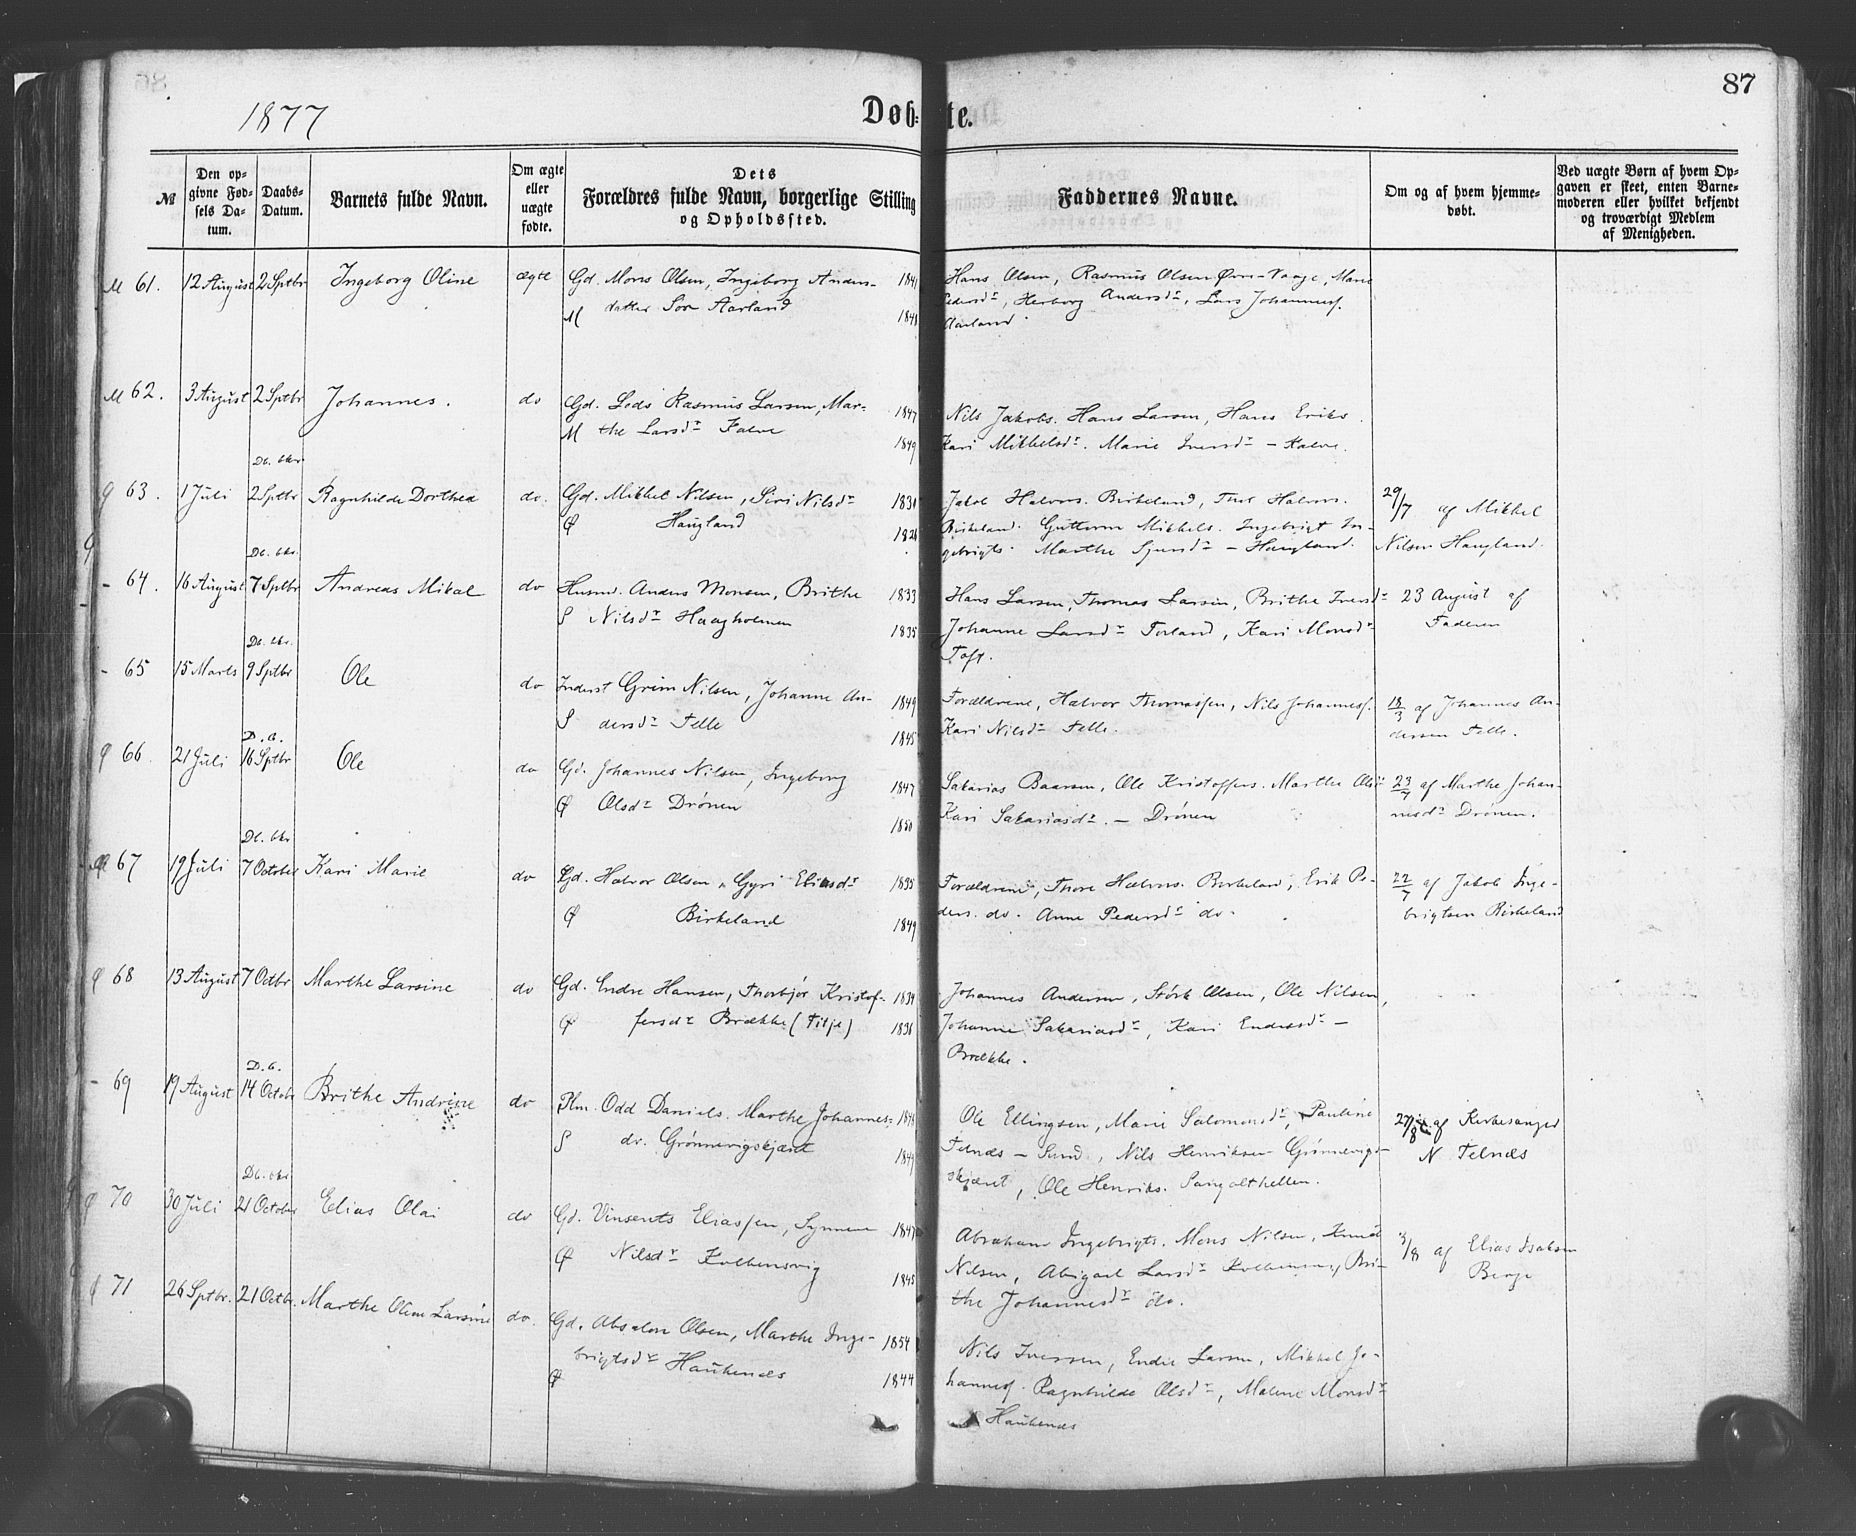 87
1877
Døb=te.
№
Den op-
givne Fød-
sels Da-
tum.
Daabs-
Datum.
Barnets fulde Navn.
Om ægte
eller
uægte
fødte.
Dets
Forældres fulde Navn, borgerlige Stilling
og Opholdssted.
Faddernes Navne.
Om og af hvem hjemme-
døbt.
Ved uægte Børn af hvem Op-
gaven er skeet, enten Barne-
moderen eller hvilket bekjendt
og troværdigt Medlem
af Menigheden.
M 61. 12 August 2 Sptbr Ingeborg Oline ægte Gd. Mons Olsen, Ingeborg Anders- 1841
M datter Sør Aarland 1848
Hans Olsen, Rasmus Olsen Øvre-Vaage, Marie
Pedersdr, Herborg Andersdr, Lars Johannesf.
Aarland
M 62. 3 August 2 Sptbr Johannes. do Gd. Lods Rasmus Larsen, Mar- 1847
M the Larsdr Kalve 1849
Nils Jakobs. Hans Larsen, Hans Eriks.
Kari Mikkelsdr. Marie Iversdr – Kalve.
Db. bkr.
Q 63. 1 Juli 2 Sptbr Ragnhilde Dorthea do. Gd. Mikkel Nilsen, Siri Nilsdr
Q Haugland
Jakob Halvors. Birkeland, Halvors.
Birkeland. Guttorm Mikkels. Ingebrigt In-
gebrigts. Marthe Sjursdr – Haugland.
29/7 af Mikkel
Nilsen Haugland.
Db. bkr.
- 64. 16 August 7 Sptbr Andreas Mikal do Husmd. Anders Monsen, Brithe 1833
S Nilsdr Haagholmen 1835
Hans Larsen, Thomas Larsen, Brithe Iversdr
Johanne Larsdr Torland, Kari Monsdr
Toft.
23 August af
Faderen
Db. bkr.
- 65 15 Marts 9 Sptbr Ole do Inderst Grim Nilsen, Johanne An- 1849
S dersdr Telle 1845
Forældrene, Halvor Thomassen, Nils Johannesf.
Kari Nilsdr Telle.
18/3 af Johannes An-
dersen Telle.
D. b.
Q 66 21 Juli 16 Sptbr Ole do Gd. Johannes Nilsen, Ingeborg 1847
Q Olsdr Drönen 1850
Sakarias Baarsen, Ole Kristoffers. Marthe Olsdr
Kari Sakariasdr. – Drönen
23/7 af Marthe Johan-
nesdr Drönen.
Db. bkr
Q 67 19 Juli 7 October Kari Marie do Gd. Halvor Olsen, Gyri Eliasdr 1835
Q Birkeland 1849
Forældrene, Thore Halvors. Birkeland, Erik Pe-
ders. do. Anne Pedersdr do.
22/7 af Jakob Inge-
brigtsen Birkeland
Q 68 13 August 7 Octbr Marthe Larsine do Gd. Endre Hansen, Thorbjør Kristof- 1834
Q fersdr Brække (Titje)
Johannes Andersen, Størk Olsen, Ole Nilsen,
Johanne Sakariasdr, Kari Endresdr –
Brække.
D. b.
- 69 19 August 14 Octobr Brithe Andrine do Plm. Odd Daniels. Marthe Johannes-
S dr. Grønnevigskjæret 1849
Ole Ellingsen, Marie Salomonsdr, Pauline
Telnæs – Sund, Nils Henriksen Grønnevig-
skjæret, Ole Henriks.
27/8 af Kirkesanger
N Telnæs
Db. bkr
Q 70 30 Juli 21 October Elias Olai do Gd. Vinsents Eliassen, Synneve 1847
Q Nilsdr Kolbensvig 1845
Abraham Ingebrigts. Mons Nilsen, Knud
Nilsen, Abigael Larsdr Bri-
the Johannesdr do.
3/8 af Elias Isaksen
Berge
Q 71 26 Sptbr. 21 Octbr. Marthe Oline Larsine do. Gd. Absalon Olsen, Marthe Inge- 1854
brigtsdr Haukenæs
Q 1844
Nils Iversen, Endre Larsen, Mikkel Jo-
hannesf. Ragnhilde Olsdr, Malene Monsdr
Haukenæs